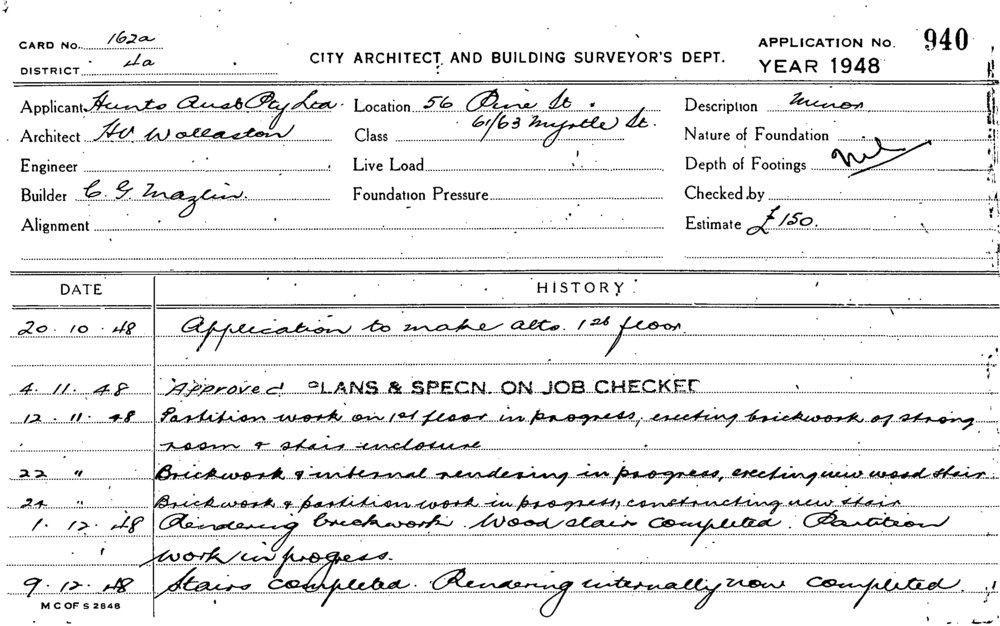 CARD No. 162a
DISTRICT 4a
CITY ARCHITECT AND BUILDING SURVEYOR'S DEPT.
APPLICATION No. 940
YEAR 1948
Applicant Hunts Aust Pty Ltd. Location 56 Pine St. Description Minor
Architect HV Wollaston Class 61/63 Myrtle St. Nature of Foundation
Engineer Live Load Depth of Footings Nil
Builder C. G. Mazlin. Foundation Pressure Checked by
Alignment Estimate £150.
DATE HISTORY
20.10.48 Application to make alts. 1st floor
4.11.48 Approved PLANS & SPECN. ON JOB CHECKED
12.11.48 Partition work on 1st floor in progress, erecting brickwork of strong
room & stair enclosure
22 " Brickwork & internal rendering in progress, erecting new wood stair
24 " Brickwork & partition work in progress, constructing new stair
1.12.48 Rendering brickwork. Wood stair completed. Partition
work in progress.
9.12.48 Stairs completed. Rendering internally now completed.
M C OF S 2848